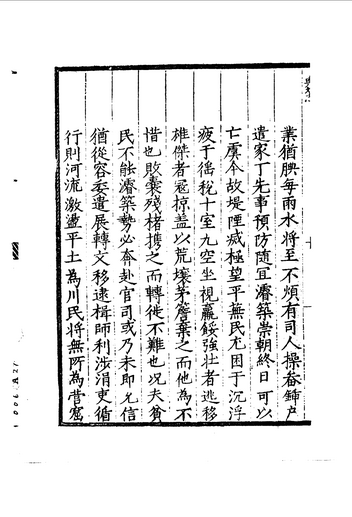 業猶腴每雨水將至不煩有司人操畚鍤戸
遣家丁先事預防隨宜濬築崇朝終日可以
亡虞今故堤陻滅極望平蕪民尤困于沉浮
疲于徭稅十室九空坐視羸餒強壯者逃移
雄傑者寇掠盖以荒壤茅簷棄之而他為不
惜也敗囊殘楮擕之而轉徙不難也况夫貧
民不能濬築勢必奔赴官司或乃未即允信
猶從容委遣展轉文移逮楫師利涉涓吏循
行則河流激盪平土為川民將無所為營窟